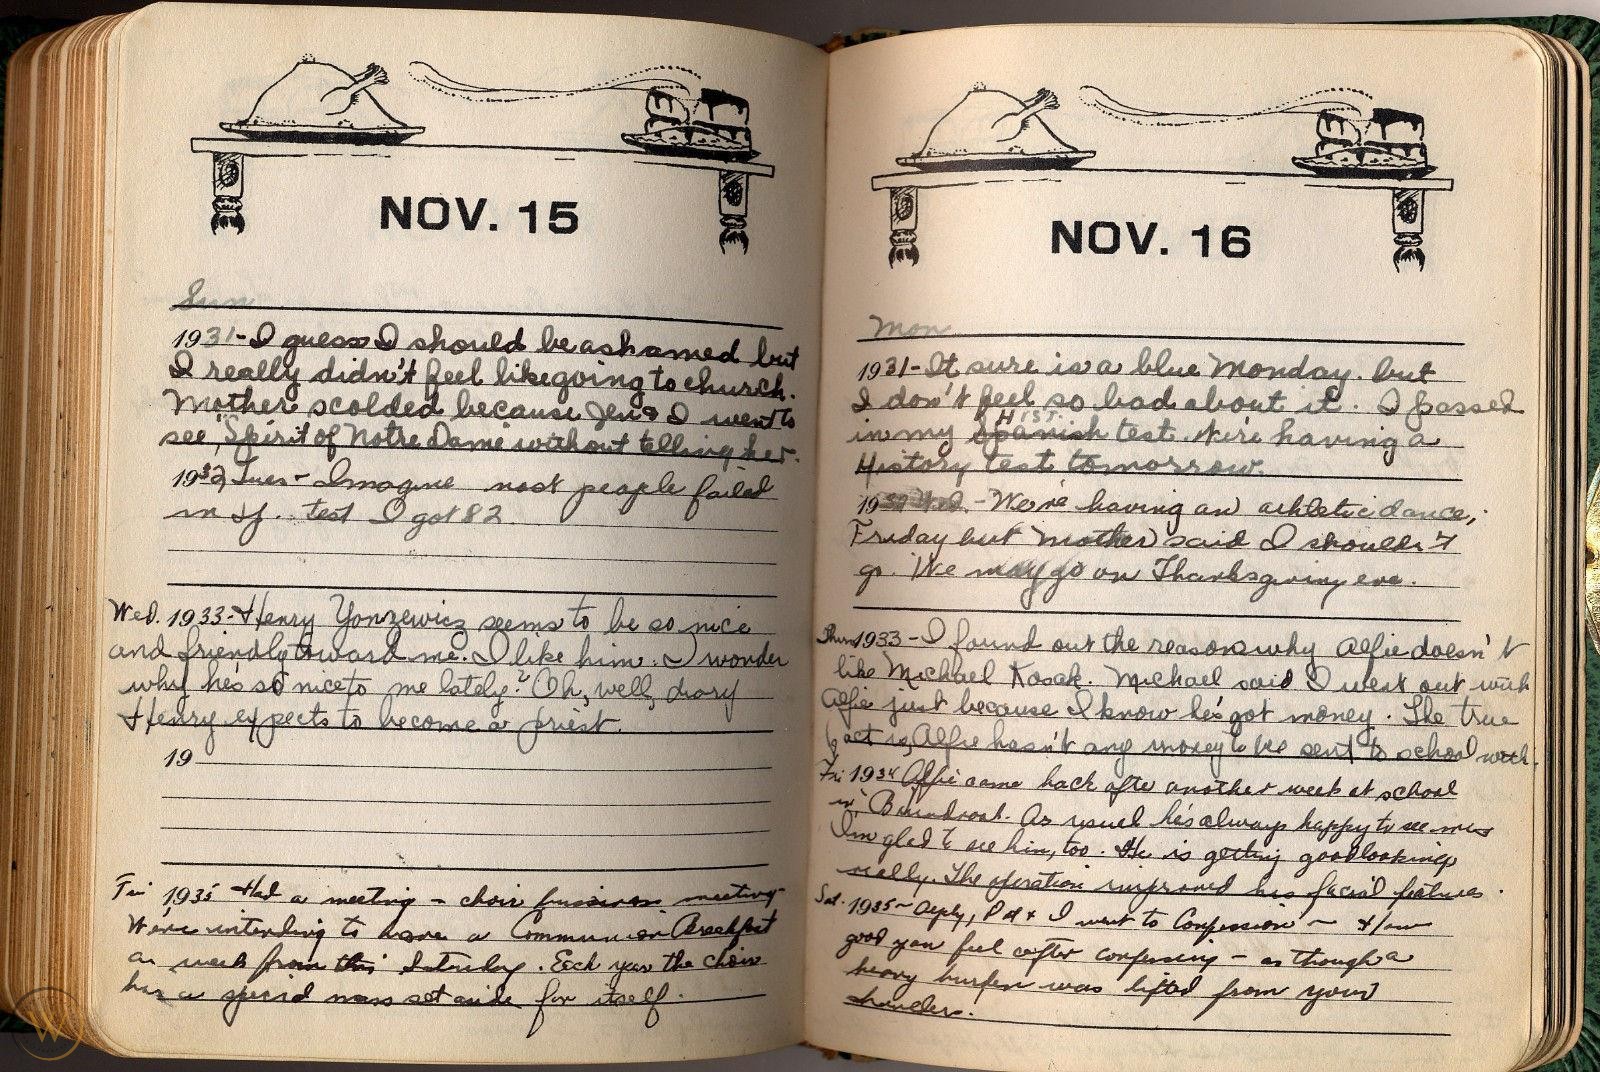 NOV. 15
Sun
1931-I guess I should be ashamed but
I really didn't feel like going to church.
Mother scolded because Jen & I went to
see "Spirit of Notre Dame" without telling her.
1932 Tues- Imagine most people failed
in test I got 82
Wed. 1933-Henry Yonzewicz seems to be so nice
and friendly toward me. I like him. I wonder
why he's so nice to me lately? Oh, well, diary
Henry expects to become a priest.
19
Fri 1935 Had a meeting - choir business meeting-
We're intending to have a Communion Breakfast
a week from this Saturday. Each year the choir
has a special mass set aside for itself.
NOV. 16
Mon
1931-It sure is a blue Monday. but
I don't feel so bad about it. I passed
HIST.
in my Spanish test. We're having a
History test tomorrow.
1932 Wed. - We're having an athletic dance,
Friday but Mother said I shouldn't
go. We may go on Thanksgiving eve.
Thurs 1933-I found out the reason why Alfie doesn't
like Michael Kosak. Michael said I went out with
Alfie just because I know he's got money. The true
fact is, Alfie hasn't any money to be sent to school with.
Fri 1934 Alfie came back after another week at school
in As usual he's always happy to see me
I'm glad to see him, too. He is getting goodlooking
really. The operation improved his facial features.
Sat. 1935- Pat & I went to Confession - How
good you feel after confessing - as though a
heavy burden was lifted from your
shoulders.
W